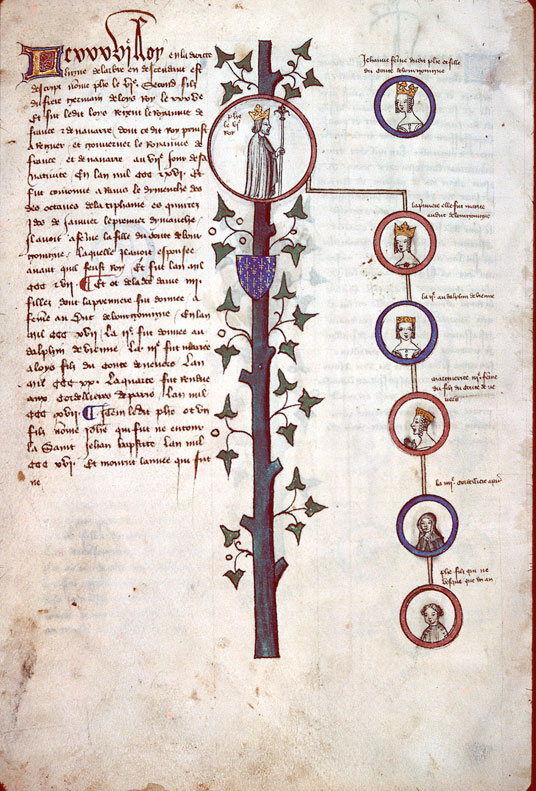 Le xxxvi Roy en la dicte
ligne de larbre en descendant est
descript nome phe le Vᵉ. Second filz
du
Et fut ledit loys Regent le Royaume de
france & de navarre, dont ce dit Roy
a Regner, et gouverner le Royaume de
france, et de navarre au
nativite En lan mil ccc xvi. Et
fut couronne a Rains le dymenche des
des octaves de la tiphaine
de Janvier le premier dymenche,
Il avoit a feme la fille du conte de bour
gongne, laquelle il avoit espousee
avant quil feust Roy Et fut lan mil
ccc vii. Et de la dce dame iiii
filles dont la premiere fut donnee a
feme au Duc de bourgongne, En lan
mil ccc xvii, la iiᵉ. fut donnee au
dalphin de vienne, la iiiᵉ fut mariee
a loys filz du conte de nevers lan
mil ccc xx. la quarte fut rendue
aux Cordelieres de paris lan mil
ccc xvii. Item ledit phe ot un
filz nome Jehan qui fut ne entour
la Saint Jehan baptiste lan mil
ccc xvi. Et mourut lannee qui fut
ne
phe
le vᵉ
Roy
Jehanne feme dudit phe et fille
du conte de bourgongne
la premiere elle fut mariee
au duc de bourgongne
la iiᵉ. au dalphin de vienne
marguerite iiiᵉ feme
du filz du conte de ne
vers
la iiiiᵉ. cordeliere a paris
phe filz qui ne
vesqui que un an